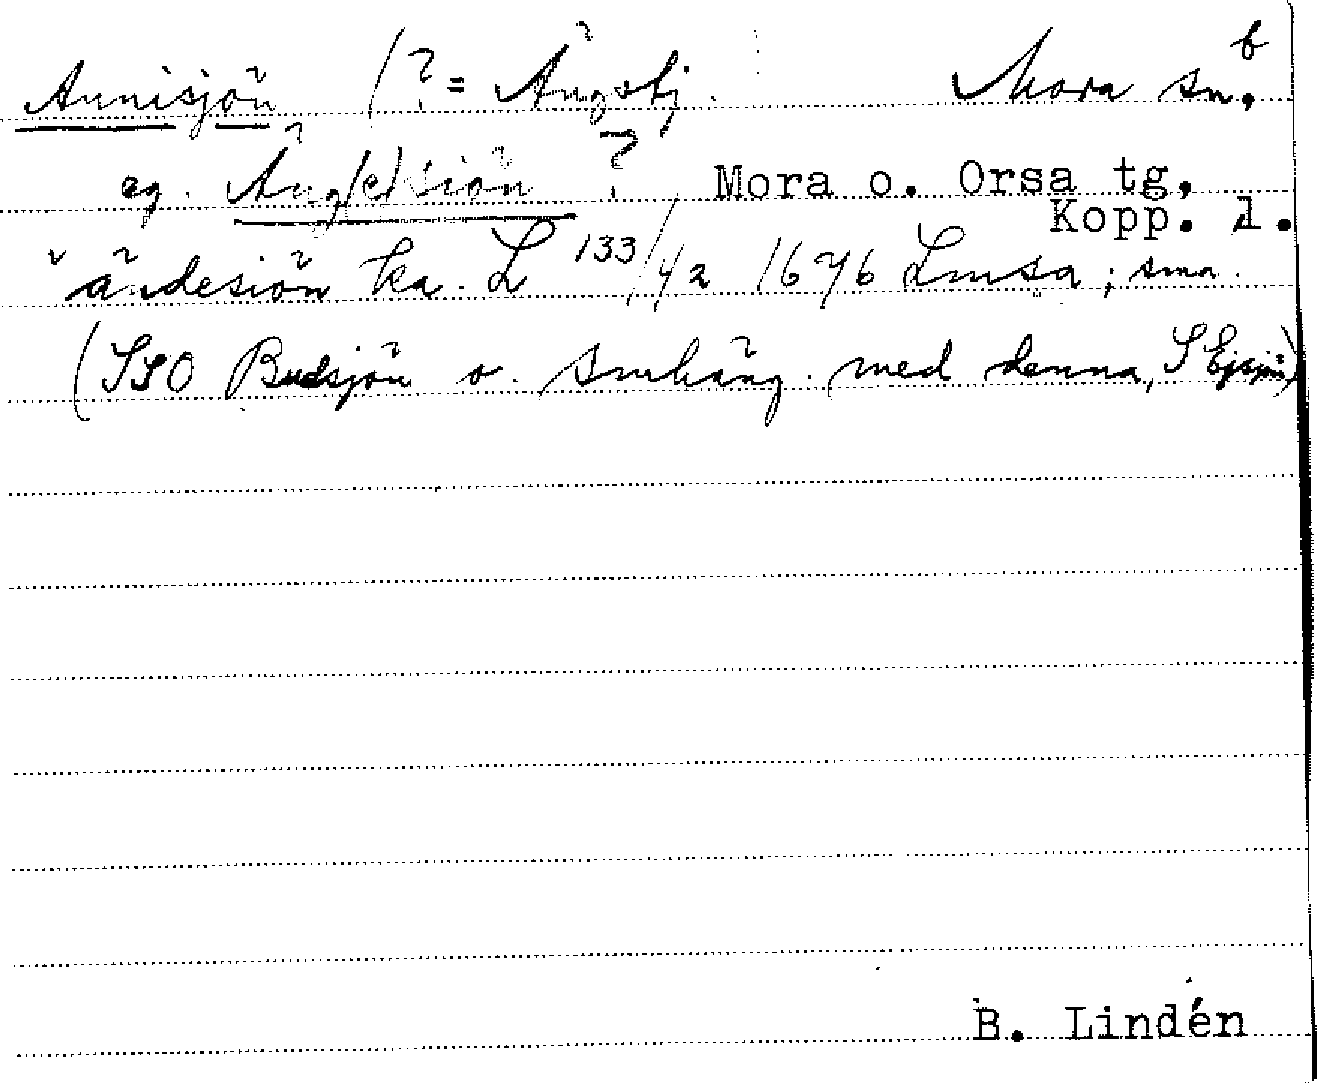 Annisjön (? = Ängsbj. Mora sn, b
eg. Äng(e)sjön ? Mora o. Orsa tg,
Kopp. l.
"ändesiön ka. L 133/42 1676 Lmsa; sma.
(SSO Budsjön o. smhäng. med denna, S Ejsjön)
B. Lindén